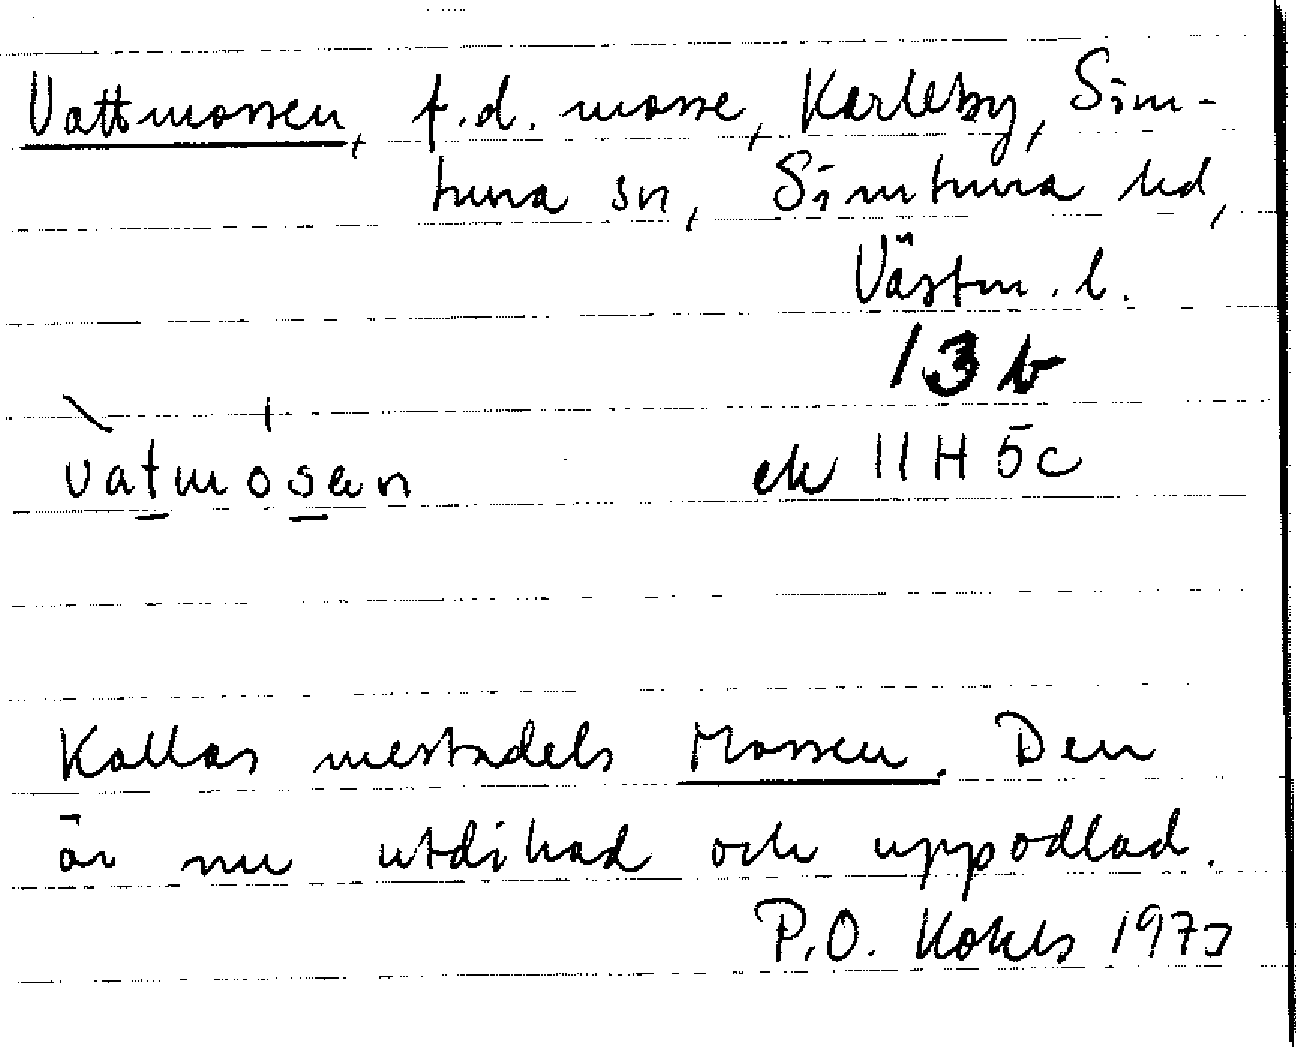 Vattmossen, f.d. mosse, Karleby, Sim-
tuna sn, Simtuna hd,
Västm. l.
13 b
vatmosen ek 11H 5c
Kallas mestadels Mossen. Den
är nu utdikad och uppodlad.
P.O. 1973